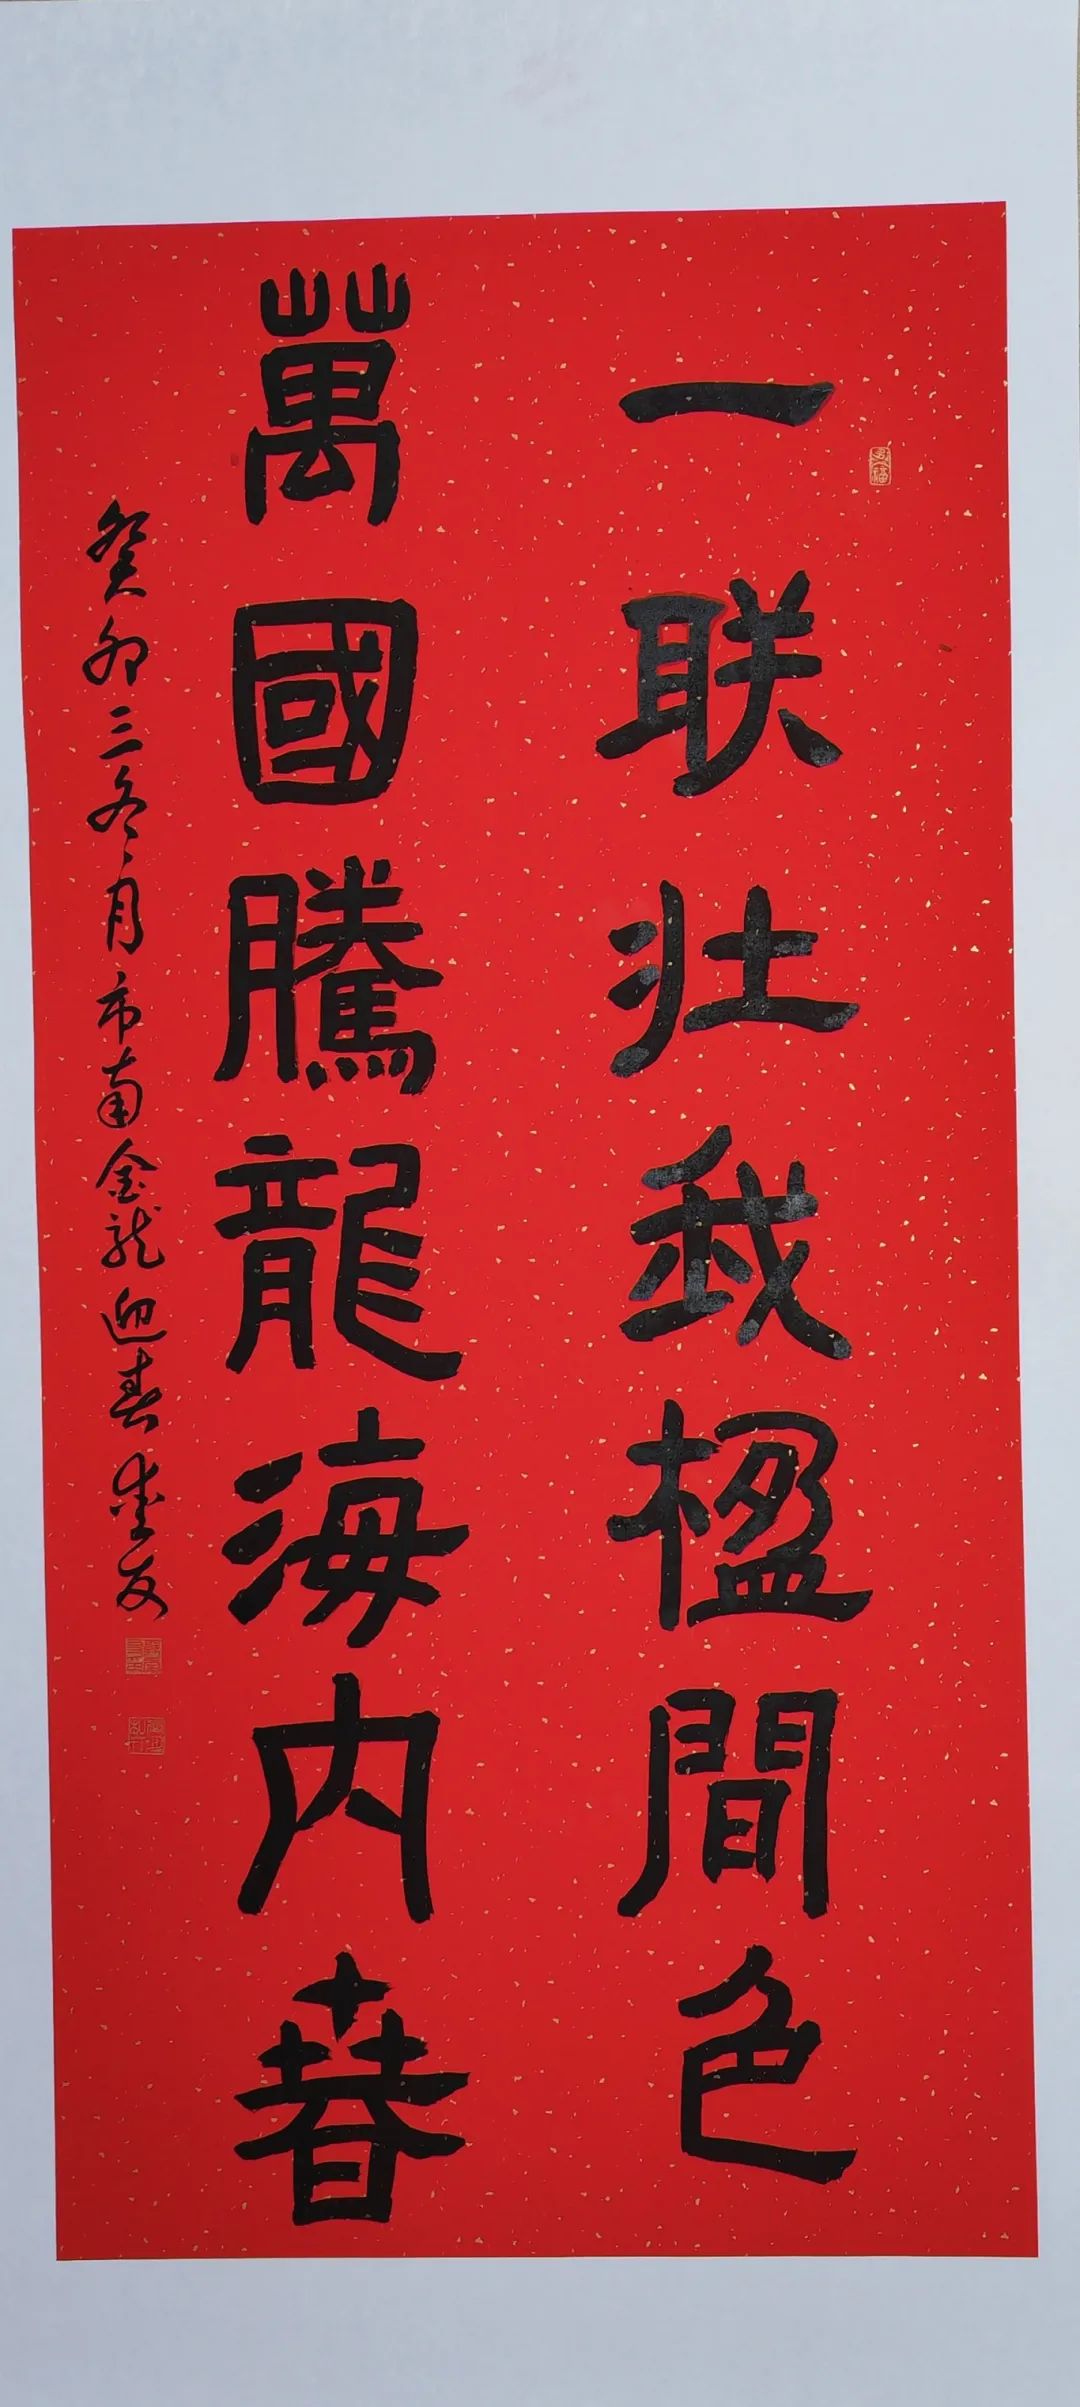 一联壮我楹間色
萬國騰龍海内春
癸卯三冬月市南金龙迎春李友